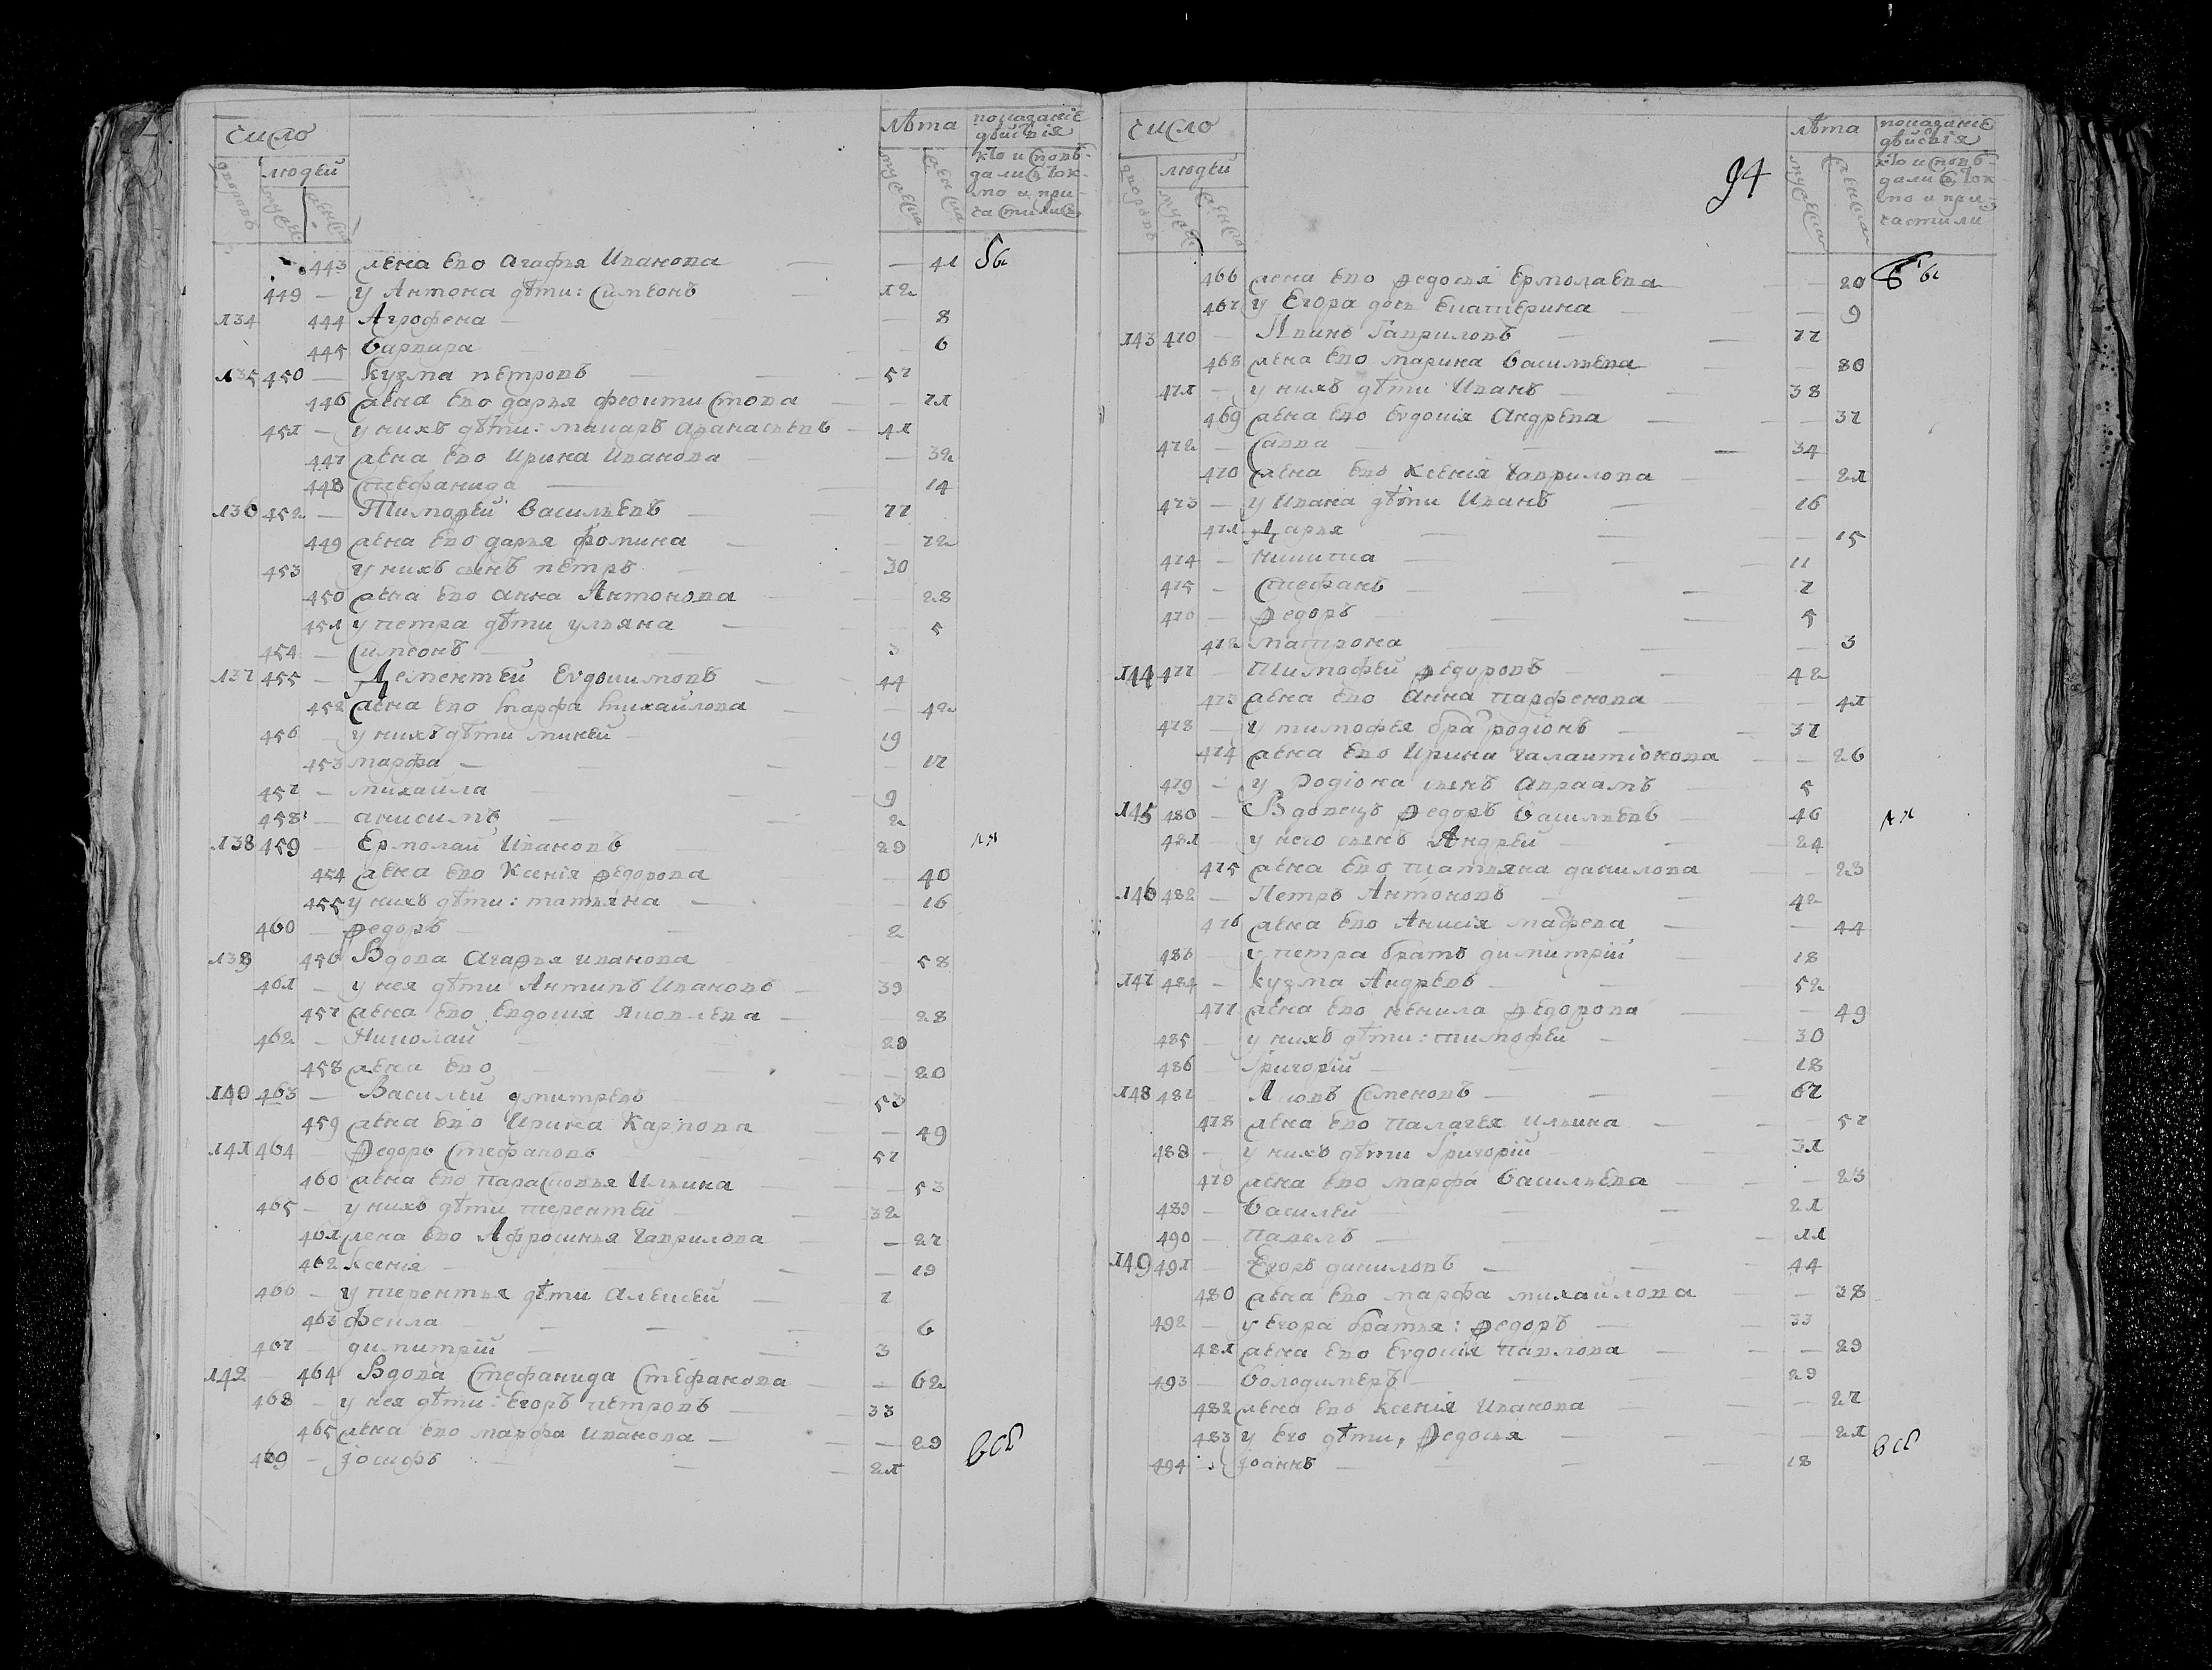 число
людей
дворовъ
мужеска
женска
лѣта
мужеска
женска
показаніе действія
кто исповѣ-
дались ток-
мо и при-
частились
443 жена ево Агафья Иванова — 41 бы
449 — у Антона дѣти: Симеонъ 12
134 444 Агрофена — 8
445 Варвара — 6
135 450 — Кузма Петровъ — 57
446 жена ево Дарья Феоктистова — 71
451 — у нихъ дѣти: Макаръ Афанасьевъ — 41
447 жена ево Ирина Иванова — 32
448 Стефанида — 14
136 452 — Тимофей Васильевъ — 77
449 жена ево Дарья Фомина — 72
453 у нихъ сынъ Петръ — 30
450 жена ево Анна Антонова — 28
451 у Петра дѣти Ульяна — 5
454 — Симеонъ — 3
137 455 — Дементей Евдокимовъ — 44
452 жена ево Марфа Михайлова — 42
456 — у нихъ дѣти Михей — 19
453 Марфа — 17
457 — Михайла — 9
458 — Анисимъ — 2
138 459 — Ермолай Ивановъ — 29
454 жена ево Ксенія Федорова — 40
455 у нихъ дѣти: Татьяна — 16
460 — Федоръ — 2
139 456 Вдова Агафья Иванова — 58
461 — у нея дѣти Антипъ Ивановъ — 39
457 жена ево Евдокия Яковлева — 28
462 — Николай — 20
458 жена ево — 20
140 463 — Василей Дмитревъ — 53
459 жена ево Ирина Карпова — 49
141 464 — Федоръ Стефановъ — 57
460 жена ево Парасковья Ильина — 53
465 — у нихъ дѣти Терентей — 32
461 жена ево Афросинья Гаврилова — 27
462 Ксенія — 19
466 — у Терентья дѣти Алексей — 7
463 Фекла — 6
467 — Димитрій — 3
142 — 464 Вдова Стефанида Стефанова — 62
468 — у нея дѣти: Егоръ Петровъ — 33
465 жена ево Марфа Иванова — 29 всѣ
469 — Іосифъ — 21
94
число
людей
дворовъ
мужеска
женска
лѣта
мужеска
женска
показаніе действія
кто исповѣ-
дались ток
мо и при-
частили
466 жена ево Федосья Ермолаева — 20 бы
467 у Егора дочь Екатерина — 9
143 470 — Иванъ Гавриловъ — 77
468 жена ево Марина Васильева — 80
471 — у нихъ дѣти Иванъ — 38
469 жена ево Евдокія Андрѣева — 37
472 — Савва — 34
470 жена ево Ксенія Гаврилова — 21
473 — у Ивана дѣти Иванъ — 16
471 Дарья — 15
474 — Никита — 11
475 — Стефанъ — 7
476 — Федоръ — 5
472 Матрона — 3
144 477 — Тимофей Федоровъ — 42
473 жена ево Анна Парфенова — 41
478 — у Тимофея братъ Родіонъ — 37
474 жена ево Ирина Галактіонова — 26
479 — у Родіона сынъ Авраамъ — 5
145 480 — Вдовецъ Федоръ Васильевъ — 46
481 — у него сынъ Андрей — 24
475 жена ево Татьяна Данилова — 23
146 482 — Петръ Антоновъ — 42
476 жена ево Анисія Мафѣева — 44
483 — у Петра братъ Димитрій — 18
147 484 — Кузма Андрѣевъ — 52
477 жена ево Ненила Федорова — 49
485 — у нихъ дѣти: Тимофей — 30
486 — Григорій — 18
148 487 — Яковъ Семеновъ — 67
478 жена ево Палагея Ильина — 57
488 — у нихъ дѣти Григорій — 31
479 жена ево Марфа Васильева — 23
489 — Василей — 21
490 — Павелъ — 11
149 491 — Егоръ Даниловъ — 44
480 жена ево Марфа Михайлова — 38
492 — у Егора братья: Федоръ — 33
481 жена ево Евдокія Павлова — 29
493 — Володимеръ — 29
482 жена ево Ксенія Иванова — 27
483 у Его дѣти, Федосья — 21 всѣ
494 — Іоаннъ — 18